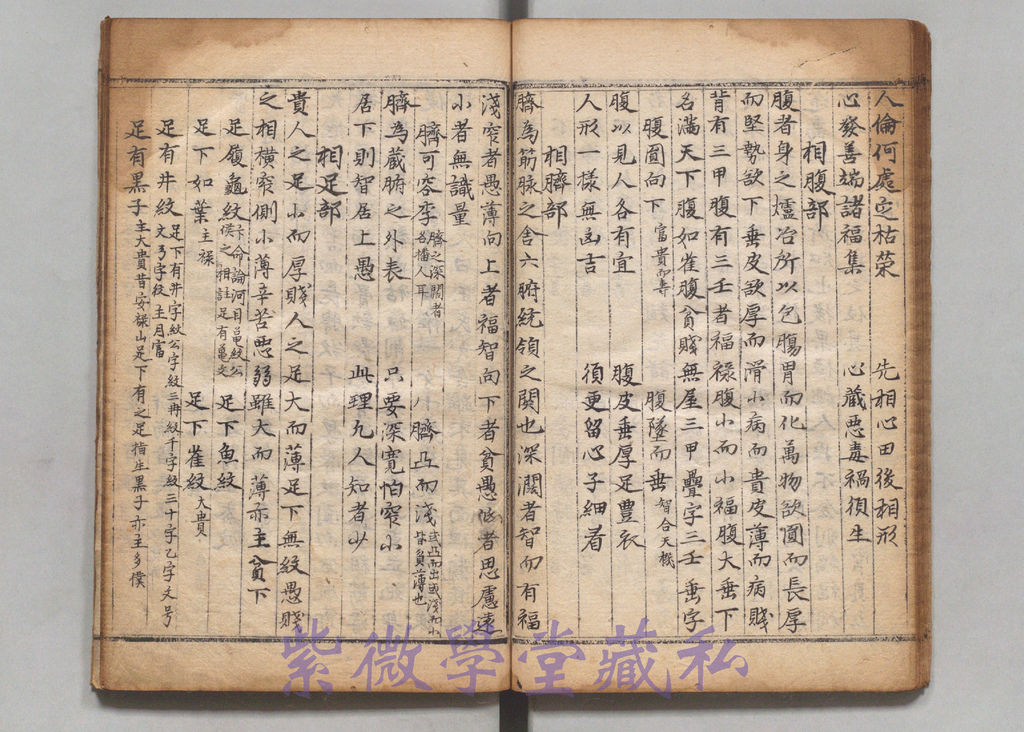 人倫何處定枯荣　先相心田後相形
心發善端諸福集　心藏惡毒禍須生
相腹部
腹者身之爐冶所以包腸胃而化萬物欲圓而長厚
而堅勢欲下垂皮欲厚而滑小病而貴皮薄而病賤
背有三甲腹有三壬者福禄腹小而小福腹大垂下
名滿天下腹如雀腹貧賤無屋三甲疊字三壬垂字
腹圓向下富貴而壽　腹墜而垂智合天機
腹以見人各有宜　腹皮垂厚足豊衣
人形一樣無凶吉　須更留心子細看
相臍部
臍為筋脉之舍六腑統領之関也深濶者智而有福
淺窄者愚薄向上者福智向下者貧愚低者思慮遠
小者無識量
臍可容李臍之深闊者名播人耳　臍凸而淺或凸而出或淺而小皆貧薄也
臍為蔵腑之外表　只要深寬怕窄小
居下則智居上愚　此理九人知者少
相足部
貴人之足小而厚賤人之足大而薄足下無紋愚賤
之相横窄側小薄辛苦惡弱雖大而薄亦主貧下
足履龜紋　足下魚紋
足下如葉主禄　足下雀紋大貴
足有井紋足下有井字紋公字紋三冉紋千字紋三十字乙字文号文弓字紋主月富
足有黒子主大貴昔安禄山足下有之足指生黒子亦主多僕
紫微學堂藏私